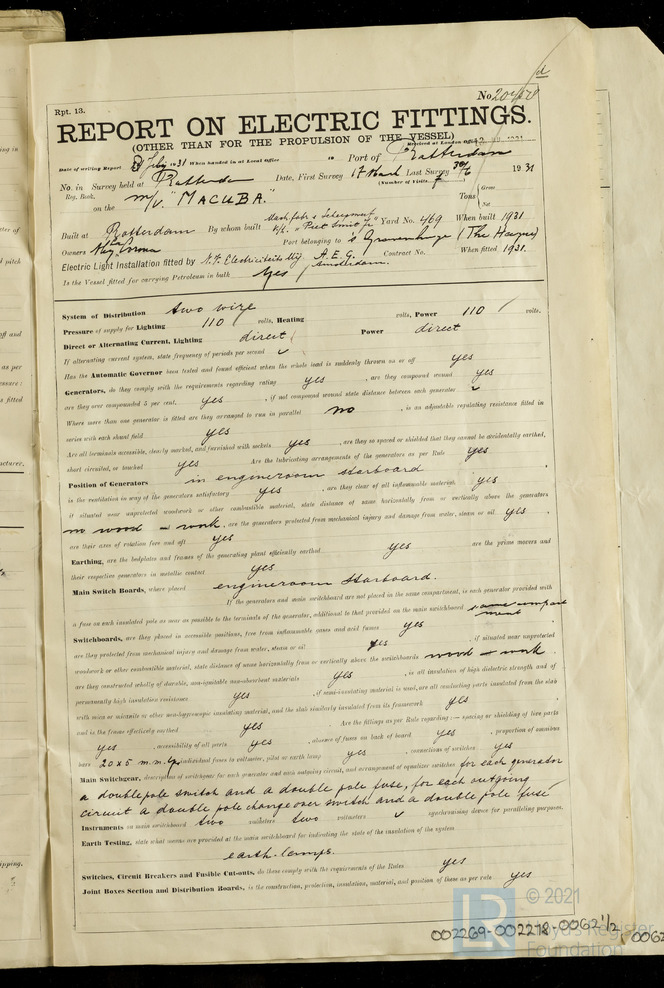 Rpt. 13.
No. 20478
REPORT ON ELECTRIC FITTINGS.
(OTHER THAN FOR THE PROPULSION OF THE VESSEL)
Received at London Office
Date of writing Report 31 When handed in at Local Office 19 Port of Rotterdam
No. in Survey held at Rotterdam Date, First Survey 17 March Last Survey 1931
Reg. Book. (Number of Visits
on the M/V. "MACUBA." Tons Gross Net
Built at Rotterdam By whom built Yard No. 469 When built 1931
Owners Port belonging to 's Gravenhage (The Hague)
Electric Light Installation fitted by N.V. Electriciteits Mij. A.E.G. Amsterdam. Contract No. When fitted 1931.
Is the Vessel fitted for carrying Petroleum in bulk yes
System of Distribution two wire
Pressure of supply for Lighting 110 volts, Heating volts, Power 110 volts.
Direct or Alternating Current, Lighting direct Power direct
If alternating current system, state frequency of periods per second
Has the Automatic Governor been tested and found efficient when the whole load is suddenly thrown on or off yes
Generators, do they comply with the requirements regarding rating yes, are they compound wound yes
are they over compounded 5 per cent. yes, if not compound wound state distance between each generator
Where more than one generator is fitted are they arranged to run in parallel no, is an adjustable regulating resistance fitted in
series with each shunt field yes
Are all terminals accessible, clearly marked, and furnished with sockets yes, are they so spaced or shielded that they cannot be accidentally earthed,
short circuited, or touched yes Are the lubricating arrangements of the generators as per Rule yes
Position of Generators in engineroom starboard
is the ventilation in way of the generators satisfactory yes, are they clear of all inflammable material yes
if situated near unprotected woodwork or other combustible material, state distance of same horizontally from or vertically above the generators
no wood-work, are the generators protected from mechanical injury and damage from water, steam or oil yes
are their axes of rotation fore and aft yes
Earthing, are the bedplates and frames of the generating plant efficiently earthed yes are the prime movers and
their respective generators in metallic contact yes
Main Switch Boards, where placed engineroom starboard.
If the generators and main switchboard are not placed in the same compartment, is each generator provided with
a fuse on each insulated pole as near as possible to the terminals of the generator, additional to that provided on the main switchboard same compartment
Switchboards, are they placed in accessible positions, free from inflammable gases and acid fumes yes
are they protected from mechanical injury and damage from water, steam or oil yes, if situated near unprotected
woodwork or other combustible material, state distance of same horizontally from or vertically above the switchboards wood-work
are they constructed wholly of durable, non-ignitable non-absorbent materials yes, is all insulation of high dielectric strength and of
permanently high insulation resistance yes, if semi-insulating material is used, are all conducting parts insulated from the slab
with mica or micanite or other non-hygroscopic insulating material, and the slab similarly insulated from its framework yes
and is the frame effectively earthed yes Are the fittings as per Rule regarding:— spacing or shielding of live parts
yes, accessibility of all parts yes, absence of fuses on back of board yes, proportion of omnibus
bars 20x5 m.m. yes, individual fuses to voltmeter, pilot or earth lamp yes, connections of switches yes
Main Switchgear, description of switchgear for each generator and each outgoing circuit, and arrangement of equalizer switches for each generator
a doublepole switch and a double pole fuse, for each outgoing
circuit a double pole change over switch and a double pole fuse
Instruments on main switchboard two ammeters two voltmeters synchronising device for paralleling purposes.
Earth Testing, state what means are provided at the main switchboard for indicating the state of the insulation of the system
earth-lamps.
Switches, Circuit Breakers and Fusible Cut-outs, do these comply with the requirements of the Rules yes
Joint Boxes Section and Distribution Boards, is the construction, protection, insulation, material, and position of these as per rule yes
LR © 2021
Lloyd's Register
Foundation
002269-002278-0062 1/2